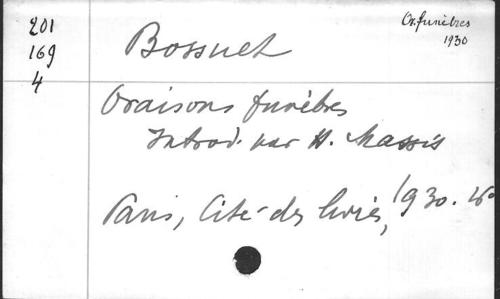 201
169
4
Or. funèbres
1930
Bossuet
Oraisons funèbres
Introd. par H. Massis
Paris, Cité des livres, 1930.